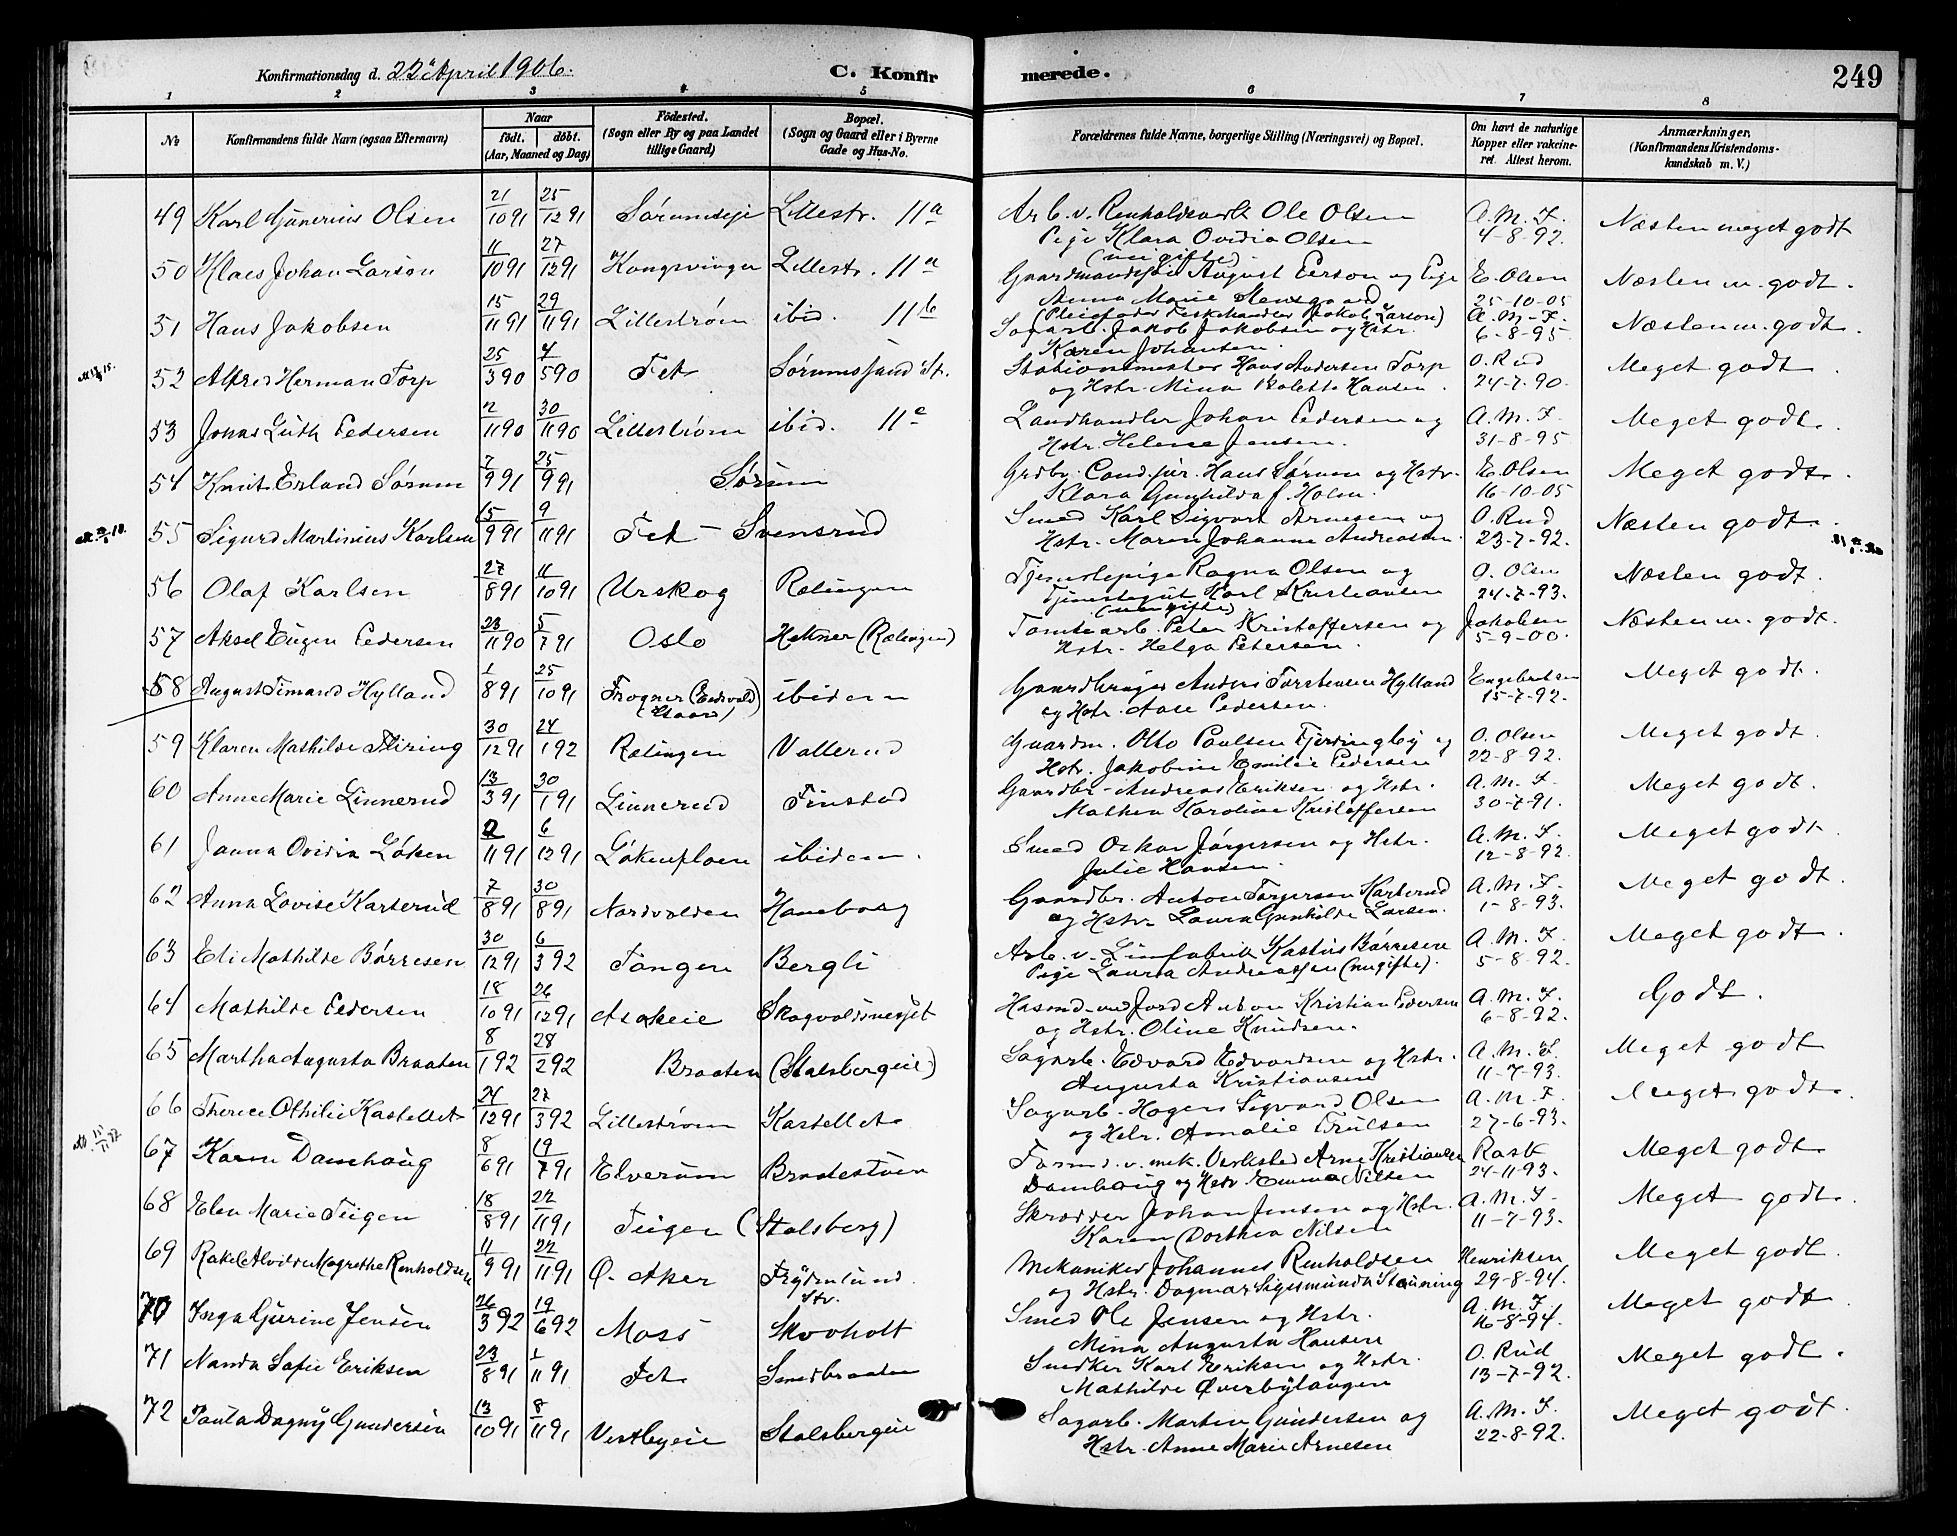 Konfirmationsdag d. 22 April 1906. C. Konfirmerede. 249
1 2 3 4 5 6 7 8
No
Konfirmandens fulde Navn (ogsaa Efternavn)
Naar
født. døbt.
(Aar, Maaned og Dag)
Fødested.
(Sogn eller By og paa Landet
tillige Gaard)
Bopæl.
(Sogn og Gaard eller i Byerne
Gade og Hus-No.
Forældrenes fulde Navne, borgerlige Stilling (Næringsvei) og Bopæl.
Om havt de naturlige
Kopper eller vakcine-
ret. Attest herom.
Anmærkninger.
(Konfirmandens Kristendoms-
kundskab m. V.)
49 Karl Olsen 21/10 91 25/12 91 Sørumseje Lillestr. 11a Arb. v. Ole Olsen A.M.F. Næsten meget godt
Pige Klara Ovidia Olsen 4-8-92.
(ugifte)
50 Klaes Johan Larson 11/10 91 27/12 91 Kongsvinger Lillestr. 11a August Person og Pige E. Olsen Næsten m. godt.
Anna Marie 25-10-05
(Pleiefader Fiskehandler Jakob Larson)
51 Hans Jakobsen 15/11 91 29/11 91 Lillestrøm ibid. 11b Sagarb. Jakob Jakobsen og Hstr. A.M.F. Næsten m. godt.
Karen Johansen. 6-8-95
52 Alfred Herman Torp 25/3 90 4/5 90 Fet Sørumssand St. Stationsmester Hans Andersen Torp O. Rud Meget godt.
og Hstr. Mina Bolette Hansen. 24-7-90.
53 Jonas Luth Pedersen 2/11 90 30/11 90 Lillestrøm ibid. 11c Landhandler Johan Pedersen og A.M.F. Meget godt.
Hstr. Helene Jensen. 31-8-95
54 Knut Erland Sørum 7/9 91 25/9 91 Sørum Grdbr. Cand. jur. Hans Sørum og Hstr. E. Olsen Meget godt.
Klara Gunhilda J. Holm. 16-10-05
55 Sigurd Martinius Karlsen 15/9 91 9/11 91 Fet - Svensrud Smed Karl Sigvart Arnesen og O. Rud Næsten godt.
Hstr. Maren Johanne Andreasen. 23-7-92.
56 Olaf Karlsen 27/8 91 11/10 91 Urskog Rælingen Tjenestepige Ragna Olsen og O. Olsen Næsten godt.
Tjenestegut Karl Kristiansen 24-7-93.
(ugifte)
57 Aksel Eugen Pedersen 23/11 90 5/7 91 Oslo Hektner (Rælingen) Tomtearb. Peter Kristoffersen og Jakobsen Næsten m. godt.
Hstr. Helga Petersen. 5-9-00.
58 August Hylland 1/8 91 25/10 91 Frogner (Eidsvold) ibidem Gaardbruger Anders Torstensen Hylland Engebretsen Meget godt.
og Hstr. Aase Pedersen. 15-7-92.
59 Klaren Mathilde 30/12 91 24/1 92 Rælingen Vallerud Gaardm. Otto Paulsen Fjerdingby og O. Olsen Meget godt.
Hstr. Jakobine Emilie Pedersen 22-8-92.
60 Anne Marie Linnerud 13/3 91 30/1 91 Linnerud Finstad Gaardbr. Andreas Eriksen og Hstr. A.M.F. Meget godt.
Mathea Karoline Kristoffersen 30-7-91.
61 Janna Ovidia Løken 2/11 91 6/12 91 Løkenfloen ibidem. Smed Oskar Jørgensen og Hstr. A.M.F. Meget godt.
Julie Hansen. 12-8-92.
62 Anna Lovise Karterud 7/8 91 30/8 91 Nordvolden Haneborg Gaardbr. Anton Torgersen Karterud A.M.F. Meget godt.
og Hstr. Laura Gunhilde Larsen. 1-8-93.
63 Eli Mathilde Børresen 30/12 91 6/3 92 Tangen Bergli Arb. v. Limfabrik Kastus Børresen A.M.F. Meget godt.
Pige Laura Andreassen (ugifte). 5-8-92.
64 Mathilde Pedersen 18/10 91 26/12 91 Asakeie Husmd. med Jord Anton Kristian Pedersen A.M.F. Godt.
og Hstr. Oline Knudsen. 6-8-92.
65 Martha Augusta Braaten 8/1 92 28/2 92 Braaten (Stalsbergeie) Sagarb. Edvard Edvardsen og Hstr. A.M.F. Meget godt
Augusta Kristiansen 11-7-93.
66 Therece Othilie Kastellet 24/12 91 27/3 92 Lillestrøm Kastellet Sagarb. Hagen Sigvard Olsen A.M.F. Meget godt.
og Hstr. Amalie Trulsen 27-6-93.
67 Karen Damhaug 8/6 91 19/7 91 Elverum Bradestuen Form. v. mek. Verksted Arne Kristiansen Rask Meget godt
Damhaug og Hstr. Emma Nilsen 24-11-93.
68 Elen Marie Teigen 18/8 91 22/11 91 Teigen (Stalsberg) Skrædder Johan Jensen og Hstr. A.M.F. Meget godt.
Karen Dorthea Nilsen 11-7-93.
69 Rakel Alvilde Magrethe Renholdsen 11/9 91 22/11 91 Ø. Aker Frydenlund Mekaniker Johannes Renholdsen Henriksen Meget godt.
Str. og Hstr. Dagmar Sigismunda Stauning 29-8-94.
70 Inga Gurine Jensen 26/3 92 19/6 92 Moss Skovholt Smed Ole Jensen og Hstr. A.M.F. Meget godt.
Mina Augusta Hansen 16-8-94.
71 Nanda Sofie Eriksen 23/8 91 1/11 91 Fet Smedbraaten Snedker Karl Eriksen og Hstr. O. Rud Meget godt.
Mathilde Øverbylangen 13-7-92.
72 Paula Dagny Gundersen 13/10 91 8/11 91 Vestbyeie Stalsbergeie Sagarb. Martin Gundersen og A.M.F. Meget godt.
Hstr. Anne Marie Arnesen 22-8-92.